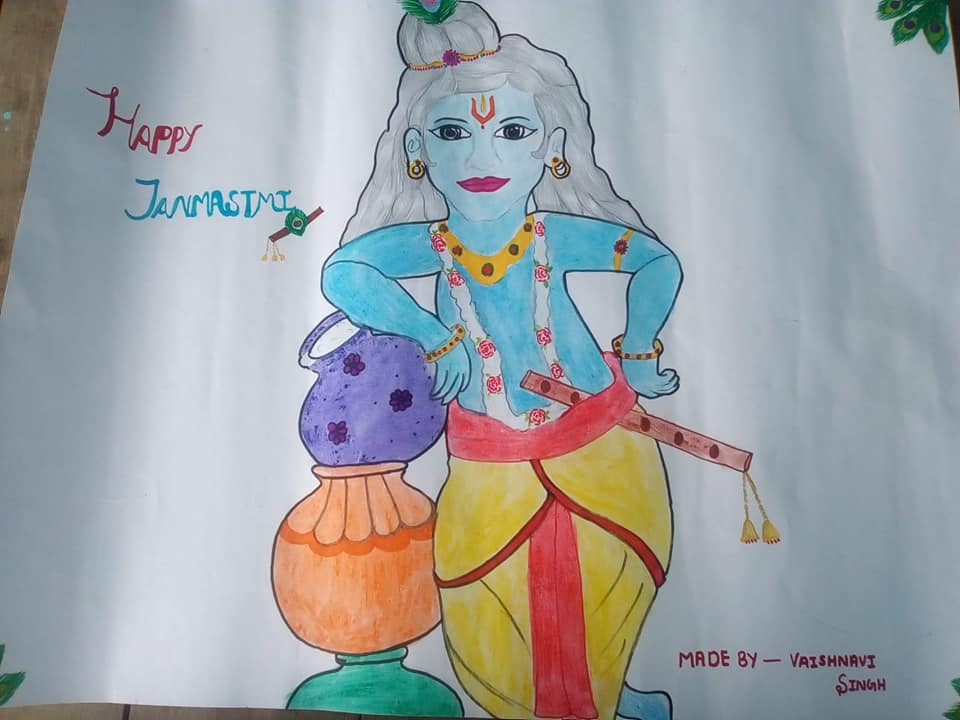 HAPPY
JANMASTMI
MADE BY — VAISHNAVI
SINGH